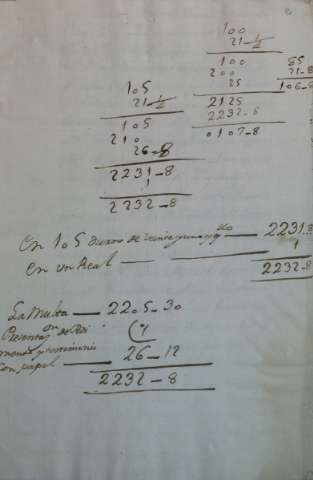 100
21-½
100
200
25
2125
2232-8
0107-8
85
21-8
106-8
105
21-½
105
210
26-8
2231-8
1
2232-8
En 105 duros de veinte y uno y qdo — 2231.8
en un Real — 1
2232-8
La Multa — 2205-30
de Roi
menos y
con papel — 26-12
2232-8